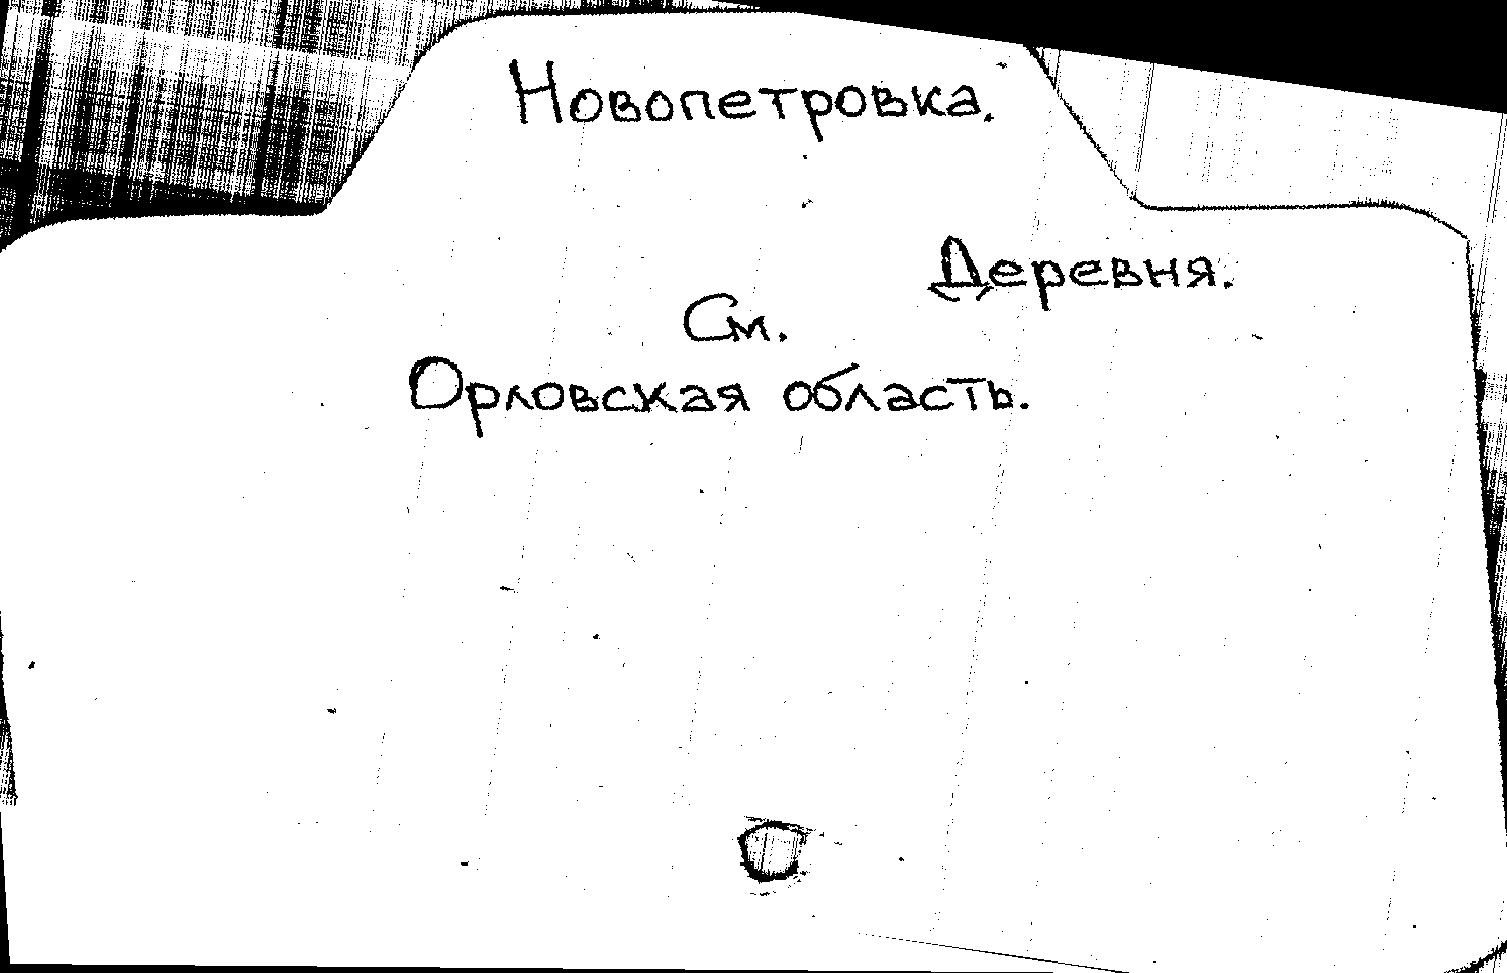 Новопетровка.
Деревня.
См.
Орловская область.